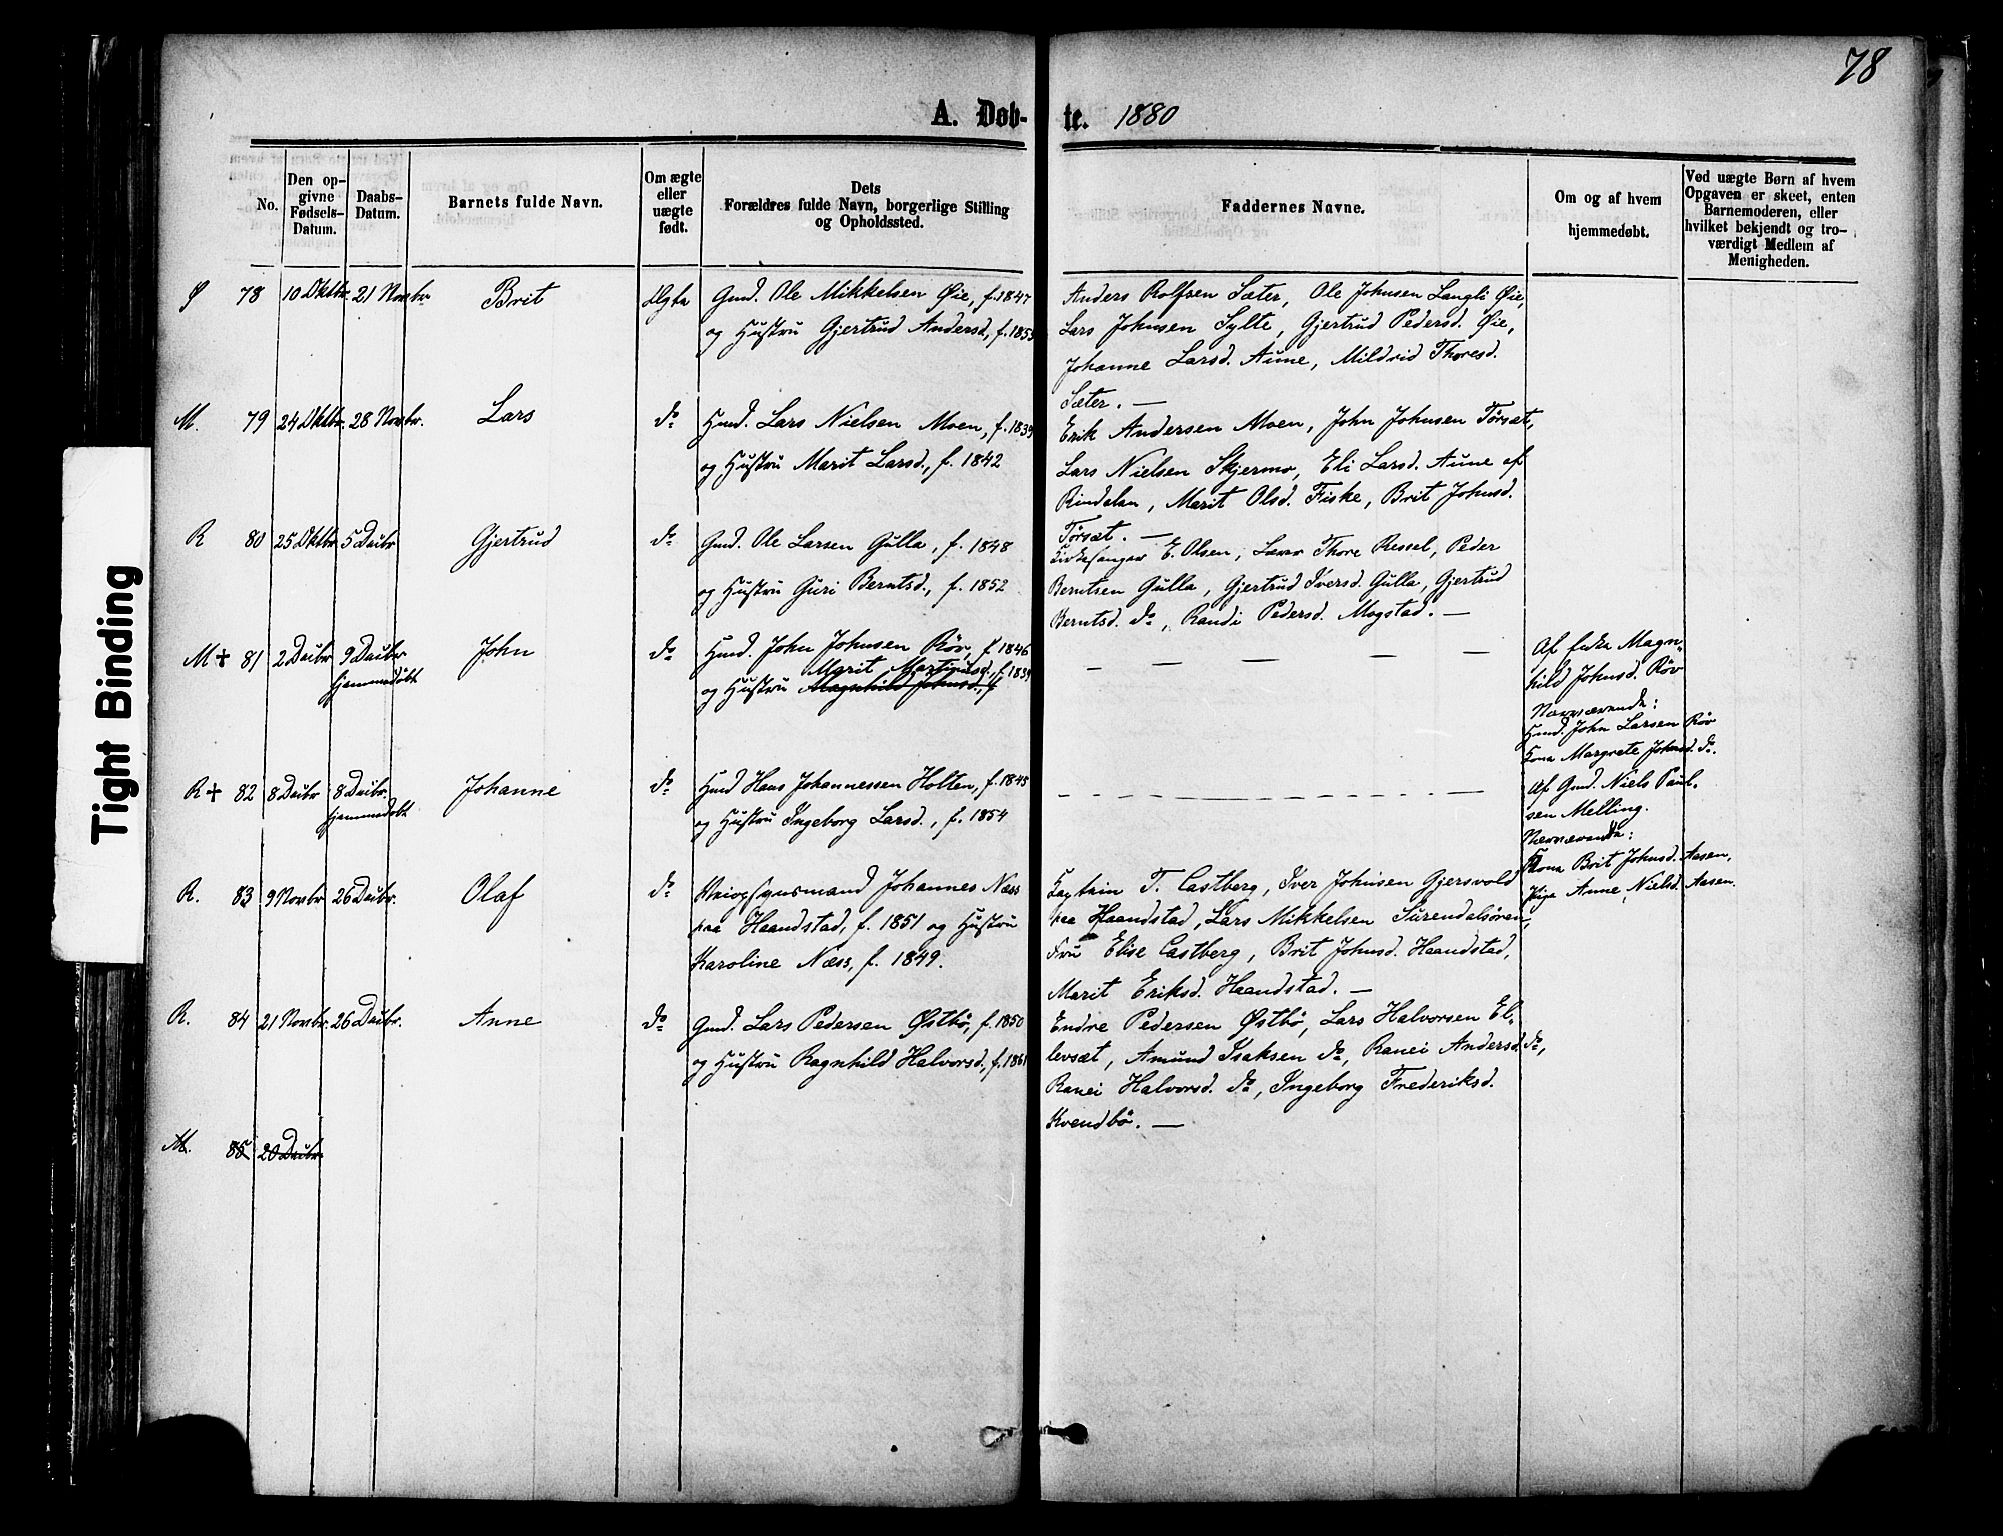 78
A. Døb- te. 1880
No.
Den opgivne Fødsels-Datum.
Daabs-Datum.
Barnets fulde Navn.
Om ægte eller uægte født.
Dets Forældres fulde Navn, borgerlige Stilling og Opholdssted.
Faddernes Navne.
Om og af hvem hjemmedøbt.
Ved uægte Børn af hvem Opgaven er skeet, enten Barnemoderen, eller hvilket bekjendt og troværdigt Medlem af Menigheden.
Ø 78 10 Oktbr. 21 Novbr Brit Ægte Gmd. Ole Mikkelsen Øie, f. 1847
og Hustru Gjertrud Andersd., f. 1853
Anders Rolfsen Sæter, Ole Johnsen Langli Øie,
Lars Johnsen Sylte, Gjertrud Pedersd. Øie,
Johanne Larsd. Aune, Mildrid Thoresd.
Sæter. —
M. 79 24 Oktbr. 28 Novbr. Lars do Hmd. Lars Nielsen Moen, f. 1839
og Hustru Marit Larsd., f. 1842
Erik Andersen Moen, John Johnsen Törsæt,
Lars Nielsen Skjermo, Eli Larsd. Aune af
Rindalen, Marit Olsd. Fiske, Brit Johnsd.
Törsæt. —
R 80 25 Oktbr 5 Decbr Gjertrud do Gmd. Ole Larsen Gulla, f. 1848
og Hustru Guri Berntsd., f. 1852
Kirkesanger E. Olsen, Lærer Thore Ressel, Peder
Berntsen Gulla, Gjertrud Iversd. Gulla, Gjertrud
Berntsd. do, Randi Pedersd. Mogstad. —
M + 81 2 Decbr 9 Decbr hjemmedøbt John do Hmd. John Johnsen Röv, f 1846
Marit Martinusd., f. 1839
og Hustru Magnhild Johnsd., f
— — — — —
Af Enke Magn-
hild Johnsd. Röv
Nærværende:
Hmd. John Larsen Röv
Kona Margrete Johnsd. do.
R + 82 8 Decbr 8 Decbr. hjemmedøbt Johanne do Hmd Hans Johannessen Holten, f. 1845
og Hustru Ingeborg Larsd., f. 1854
Af Gmd. Niels Paul-
sen Melling.
Nærværende:
Kona Brit Johnsd. Aasen,
Pige Anne Nielsd. Aasen.
R. 83 9 Novbr 26 Decbr. Olaf do Opsynsmand Johannes Næss
paa Haandstad, f. 1851 og Hustru
Karoline Næss, f. 1849.
Kaptein T. Castberg, Iver Johnsen Gjersvold
paa Haandstad, Lars Mikkelsen Surendalsören,
Fru Elise Castberg, Brit Johnsd. Haandstad,
Marit Eriksd. Haandstad. —
R. 84 21 Novbr. 26 Decbr. Anne do Gmd. Lars Pedersen Østbö, f. 1850
og Hustru Ragnhild Halvorsd., f. 1861
Endre Pedersen Østbö, Lars Halvorsen El-
levsæt, Amund Isaksen do, Ranei Andersd. do,
Ranei Halvorsd. do, Ingeborg Frederiksd.
Kvendbö. —
M. 85 20 Decbr.
Tight Binding